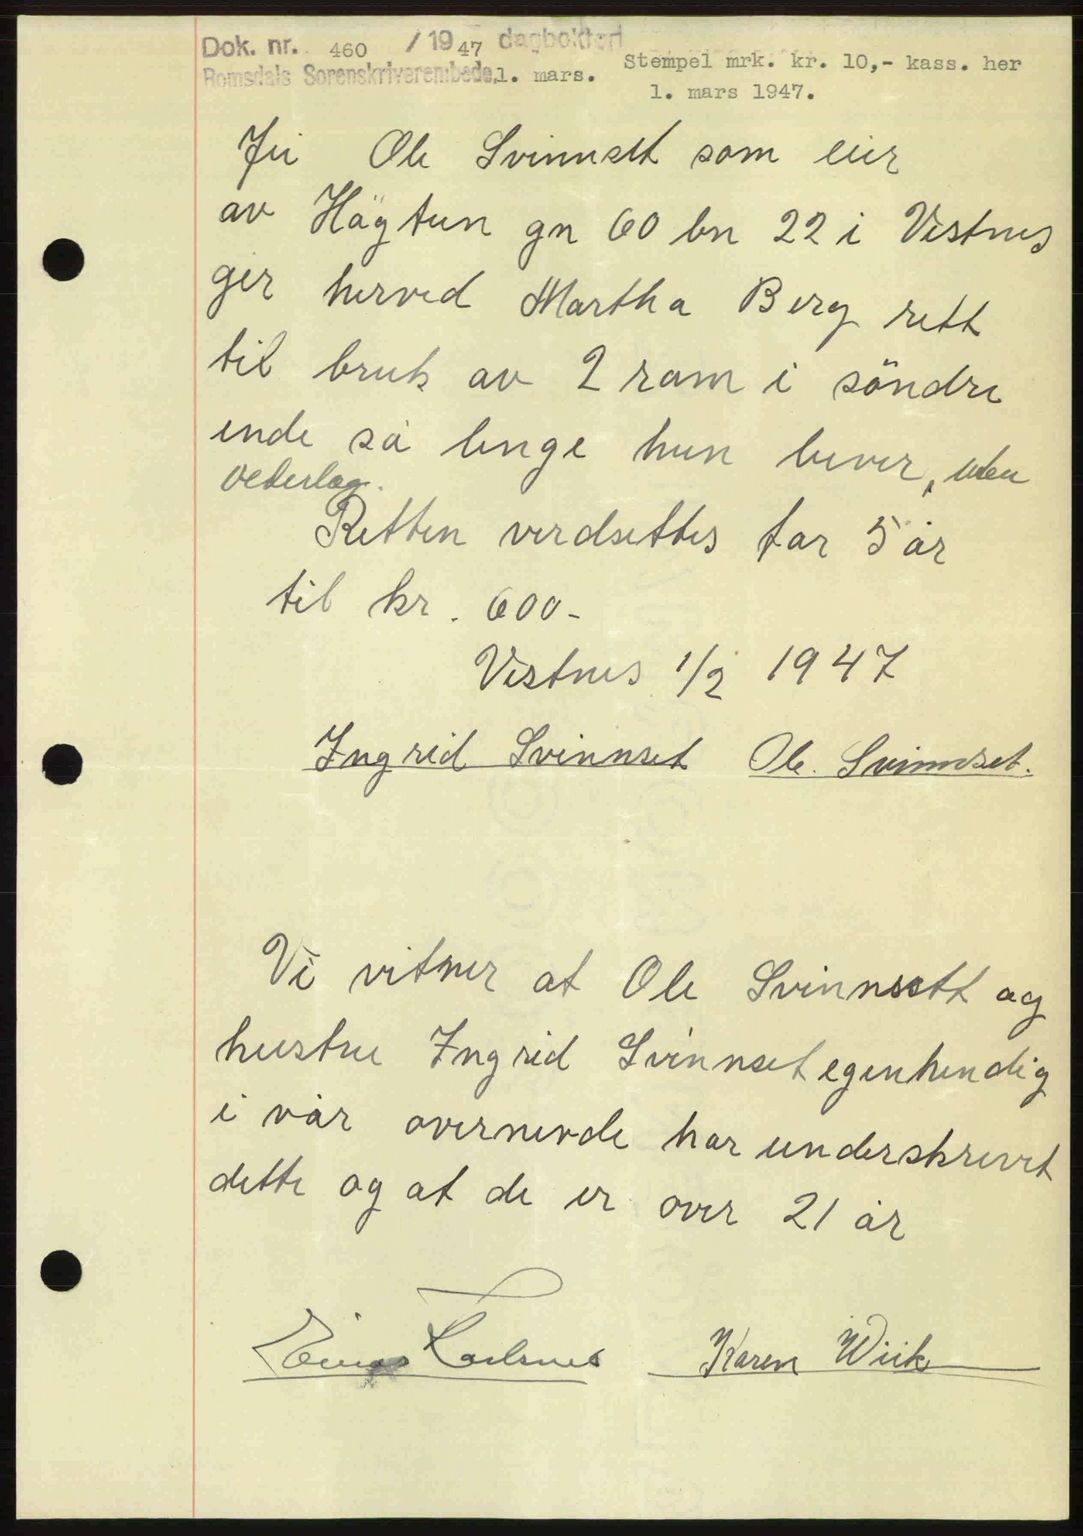 Dok. nr. 460 / 1947 dagbokført
Romsdals Sorenskriverembede, 1. mars.
Stempel mrk. kr. 10,- kass. her
1. mars 1947.
Ole Svinnset som eier
av Hägtun gn 60 bn 22 i Vestnes
gir herved Martha Berg rett
til bruk av 2 rom i söndre
ende så lenge hun lever, uten
vederlag.
Retten verdsettes for 5 år
til kr. 600-
Vestnes 1/2 1947
Ingrid Svinnset Ole Svinnset.
Vi vitner at Ole Svinnsett og
hustru Ingrid Svinnset egenhendig
i vår overnevde har underskrevet
dette og at de er over 21 år
Karen Wiik